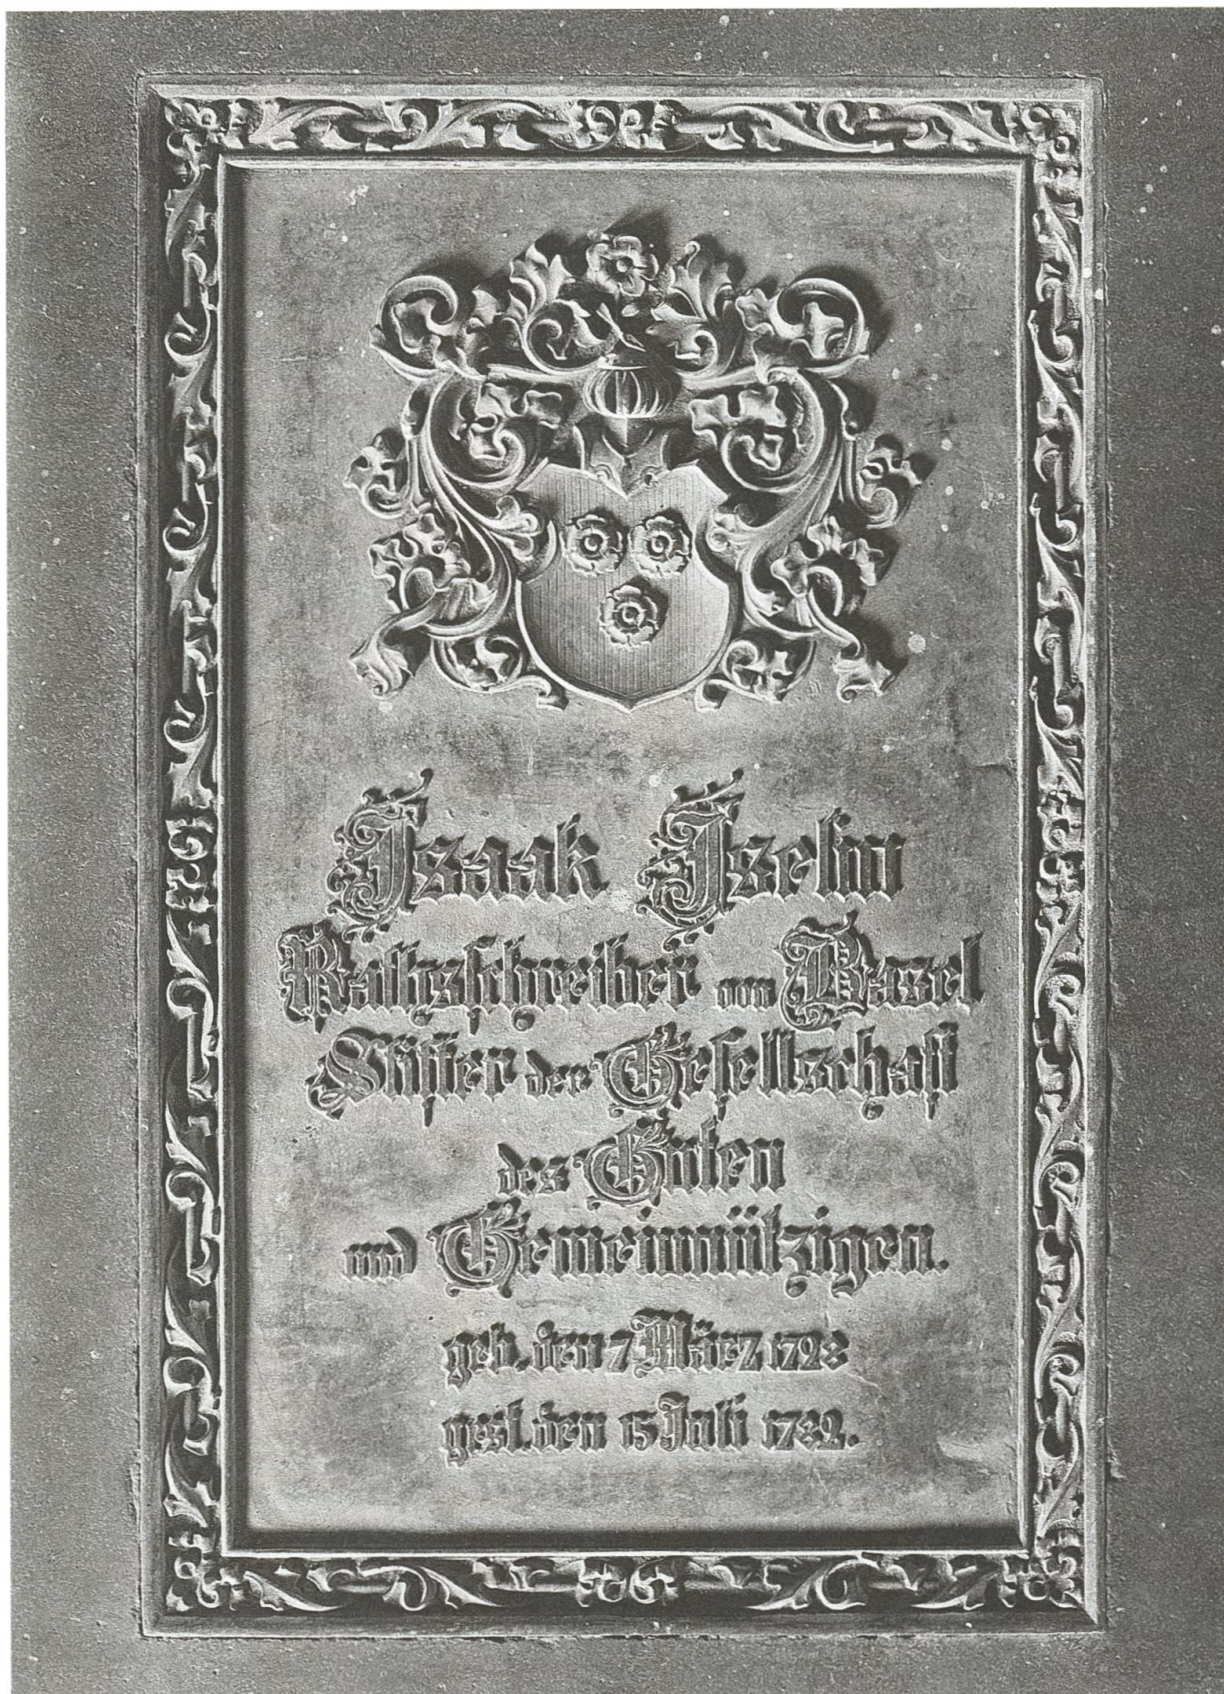 Isaak Iselin
Rathsschreiber von Basel
Stifter der Gesellschaft
des Guten
und Gemeinnützigen.
geb. den 7 März 1728
gest. den 15 Juli 1782.